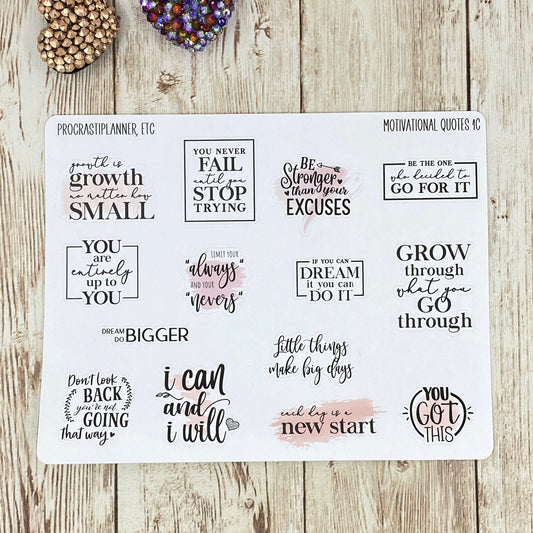 PROCRASTIPLANNER, ETC
MOTIVATIONAL QUOTES 1C
growth is
growth
no matter how
SMALL
YOU NEVER
FAIL
until you
STOP
TRYING
BE
Stronger
than your
EXCUSES
BE THE ONE
who decided to
GO FOR IT
YOU
are
entirely
up to
YOU
LIMIT YOUR
"always"
AND YOUR
"nevers"
IF YOU CAN
DREAM
it you can
DO IT
GROW
through
what you
GO
through
DREAM
DO BIGGER
Little things
make big days
Don't look
BACK
you're not
GOING
that way.
i can
and
i will
each day is a
new start
YOU
GOT
THIS